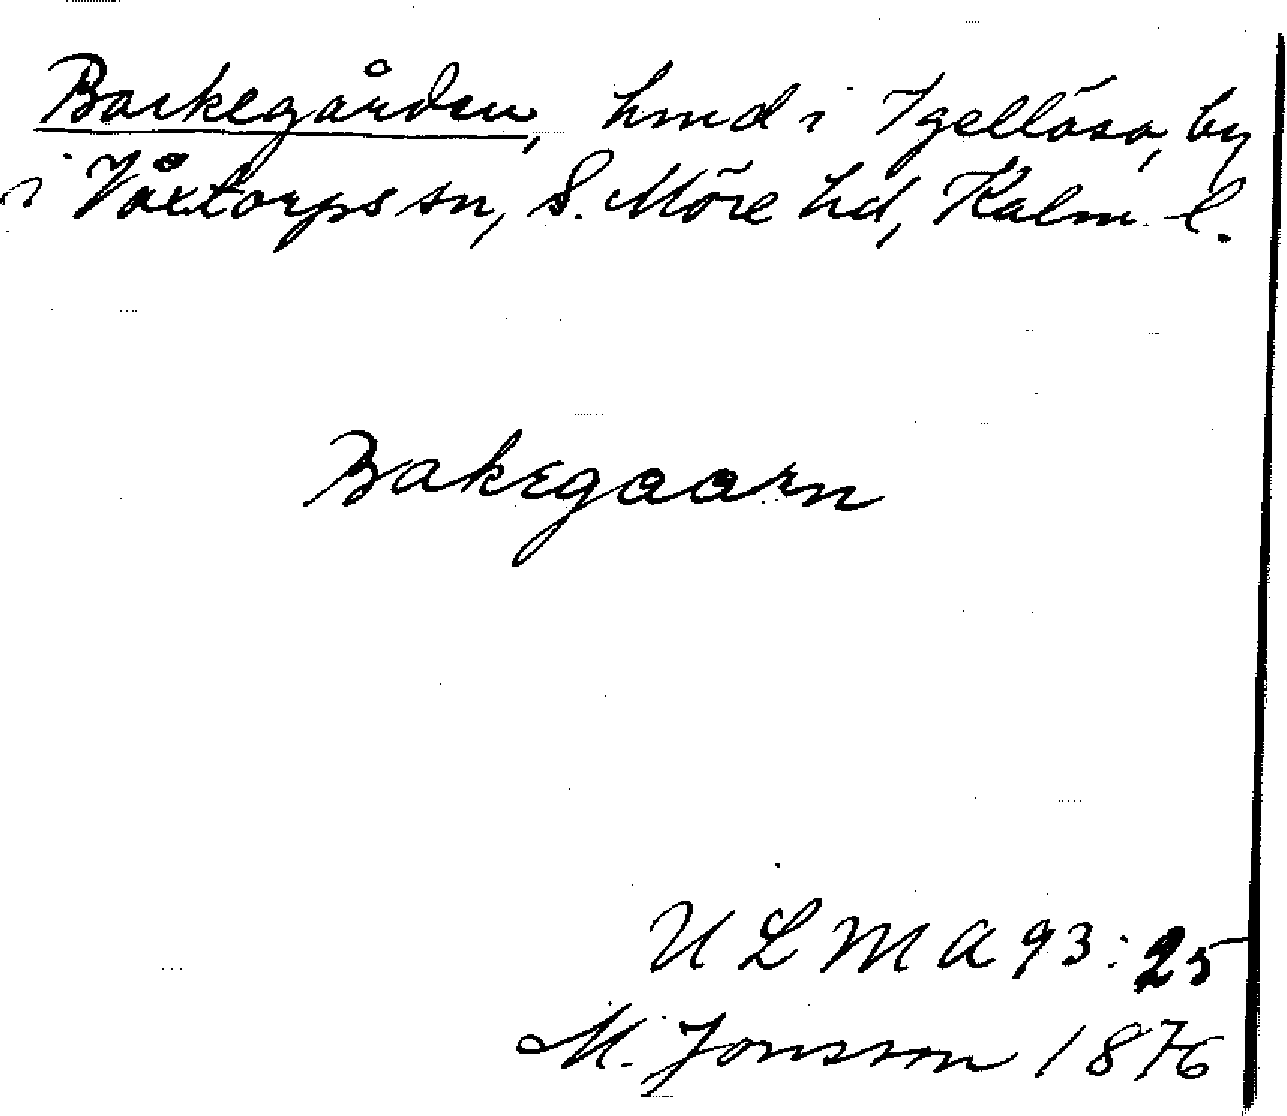 Backegården, hmd i Igellösa, by
i Våxtorps sn, S. Möre hd, Kalm. l.
Bakegaarn
ULMA 93:25
M. Jonsson 1876